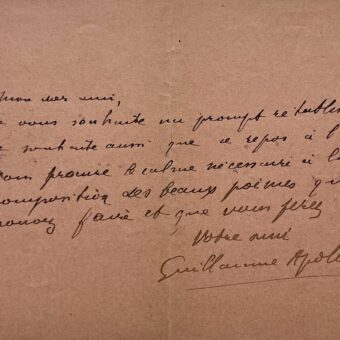 mon cher ami,
e vous souhaite un prompt rétablis
e souhaite aussi que ce repos à l
vous procure le calme nécessaire à l
composition des beaux poèmes qu
pouvez faire et que vous ferez
votre ami
Guillaume Apoll